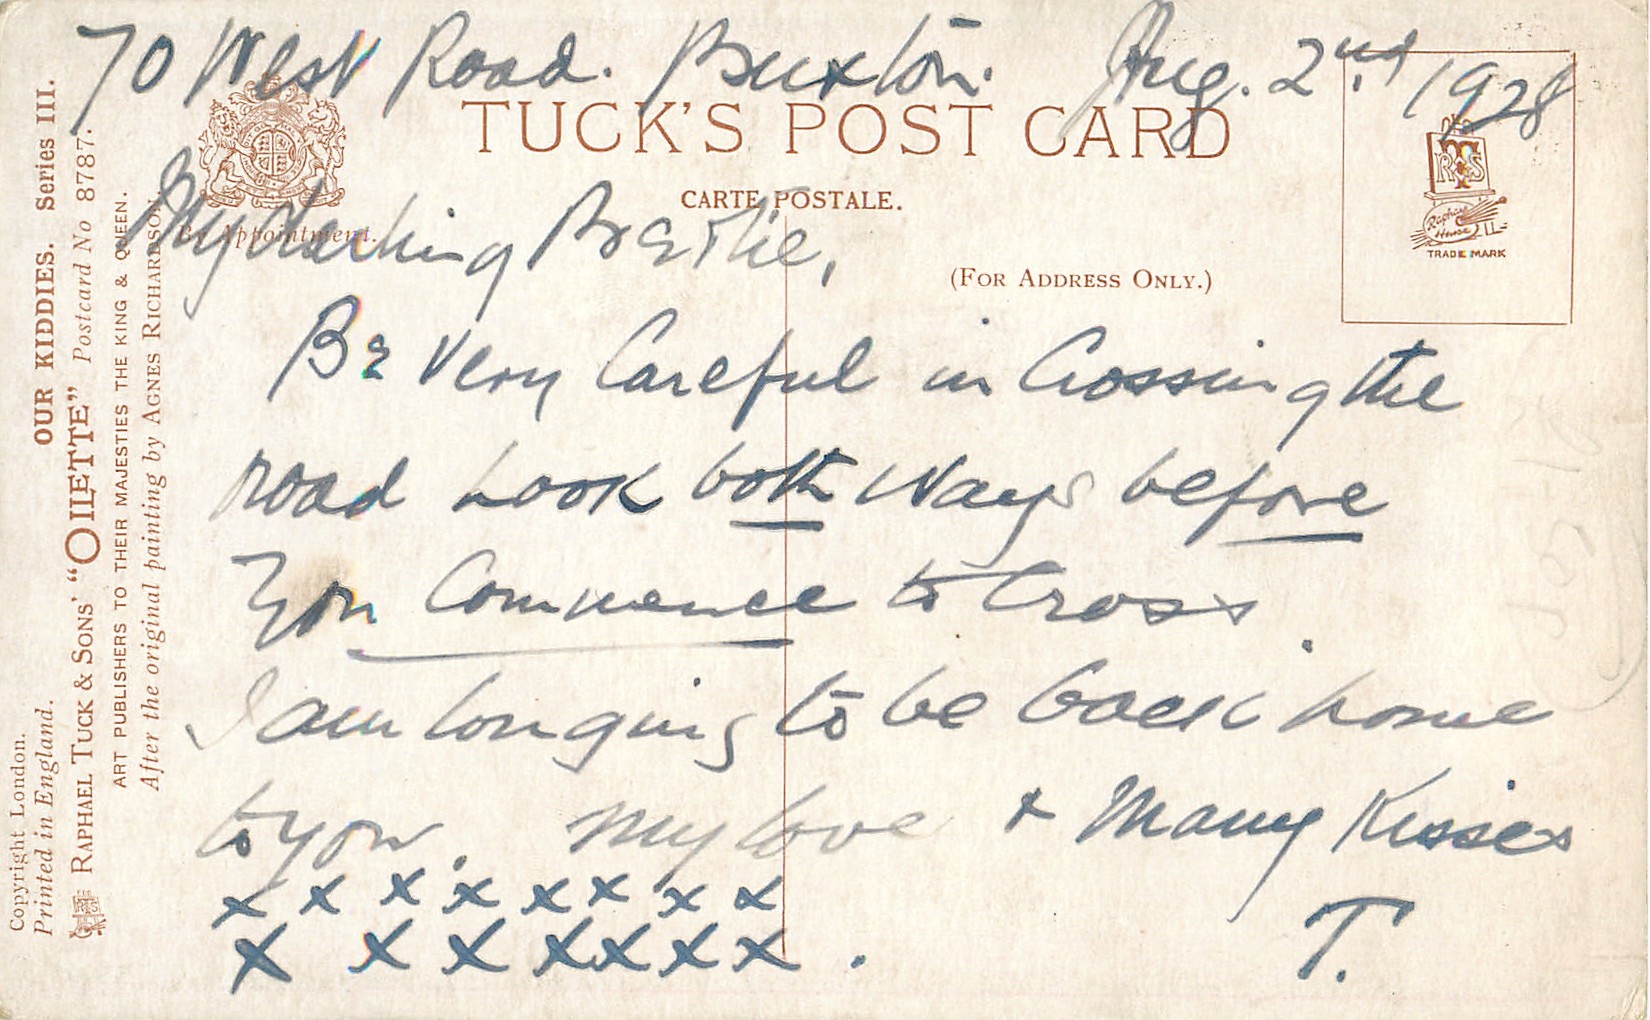 70 West Road. Buxton. Aug. 2nd 1928
TUCK'S POST CARD
CARTE POSTALE.
(FOR ADDRESS ONLY.)
By Appointment.
TRADE MARK
Raphael House
My darling Bertie,
Be very Careful in Crossing the
road Look both ways before
you Commence to Cross.
I am longing to be back home
to you. My love + Many Kisses
x x x x x x x x
x x x x x x x .
T.
Copyright London.
Printed in England.
OUR KIDDIES. Series III.
RAPHAEL TUCK & SONS' "OILETTE" Postcard No 8787.
ART PUBLISHERS TO THEIR MAJESTIES THE KING & QUEEN.
After the original painting by AGNES RICHARDSON.